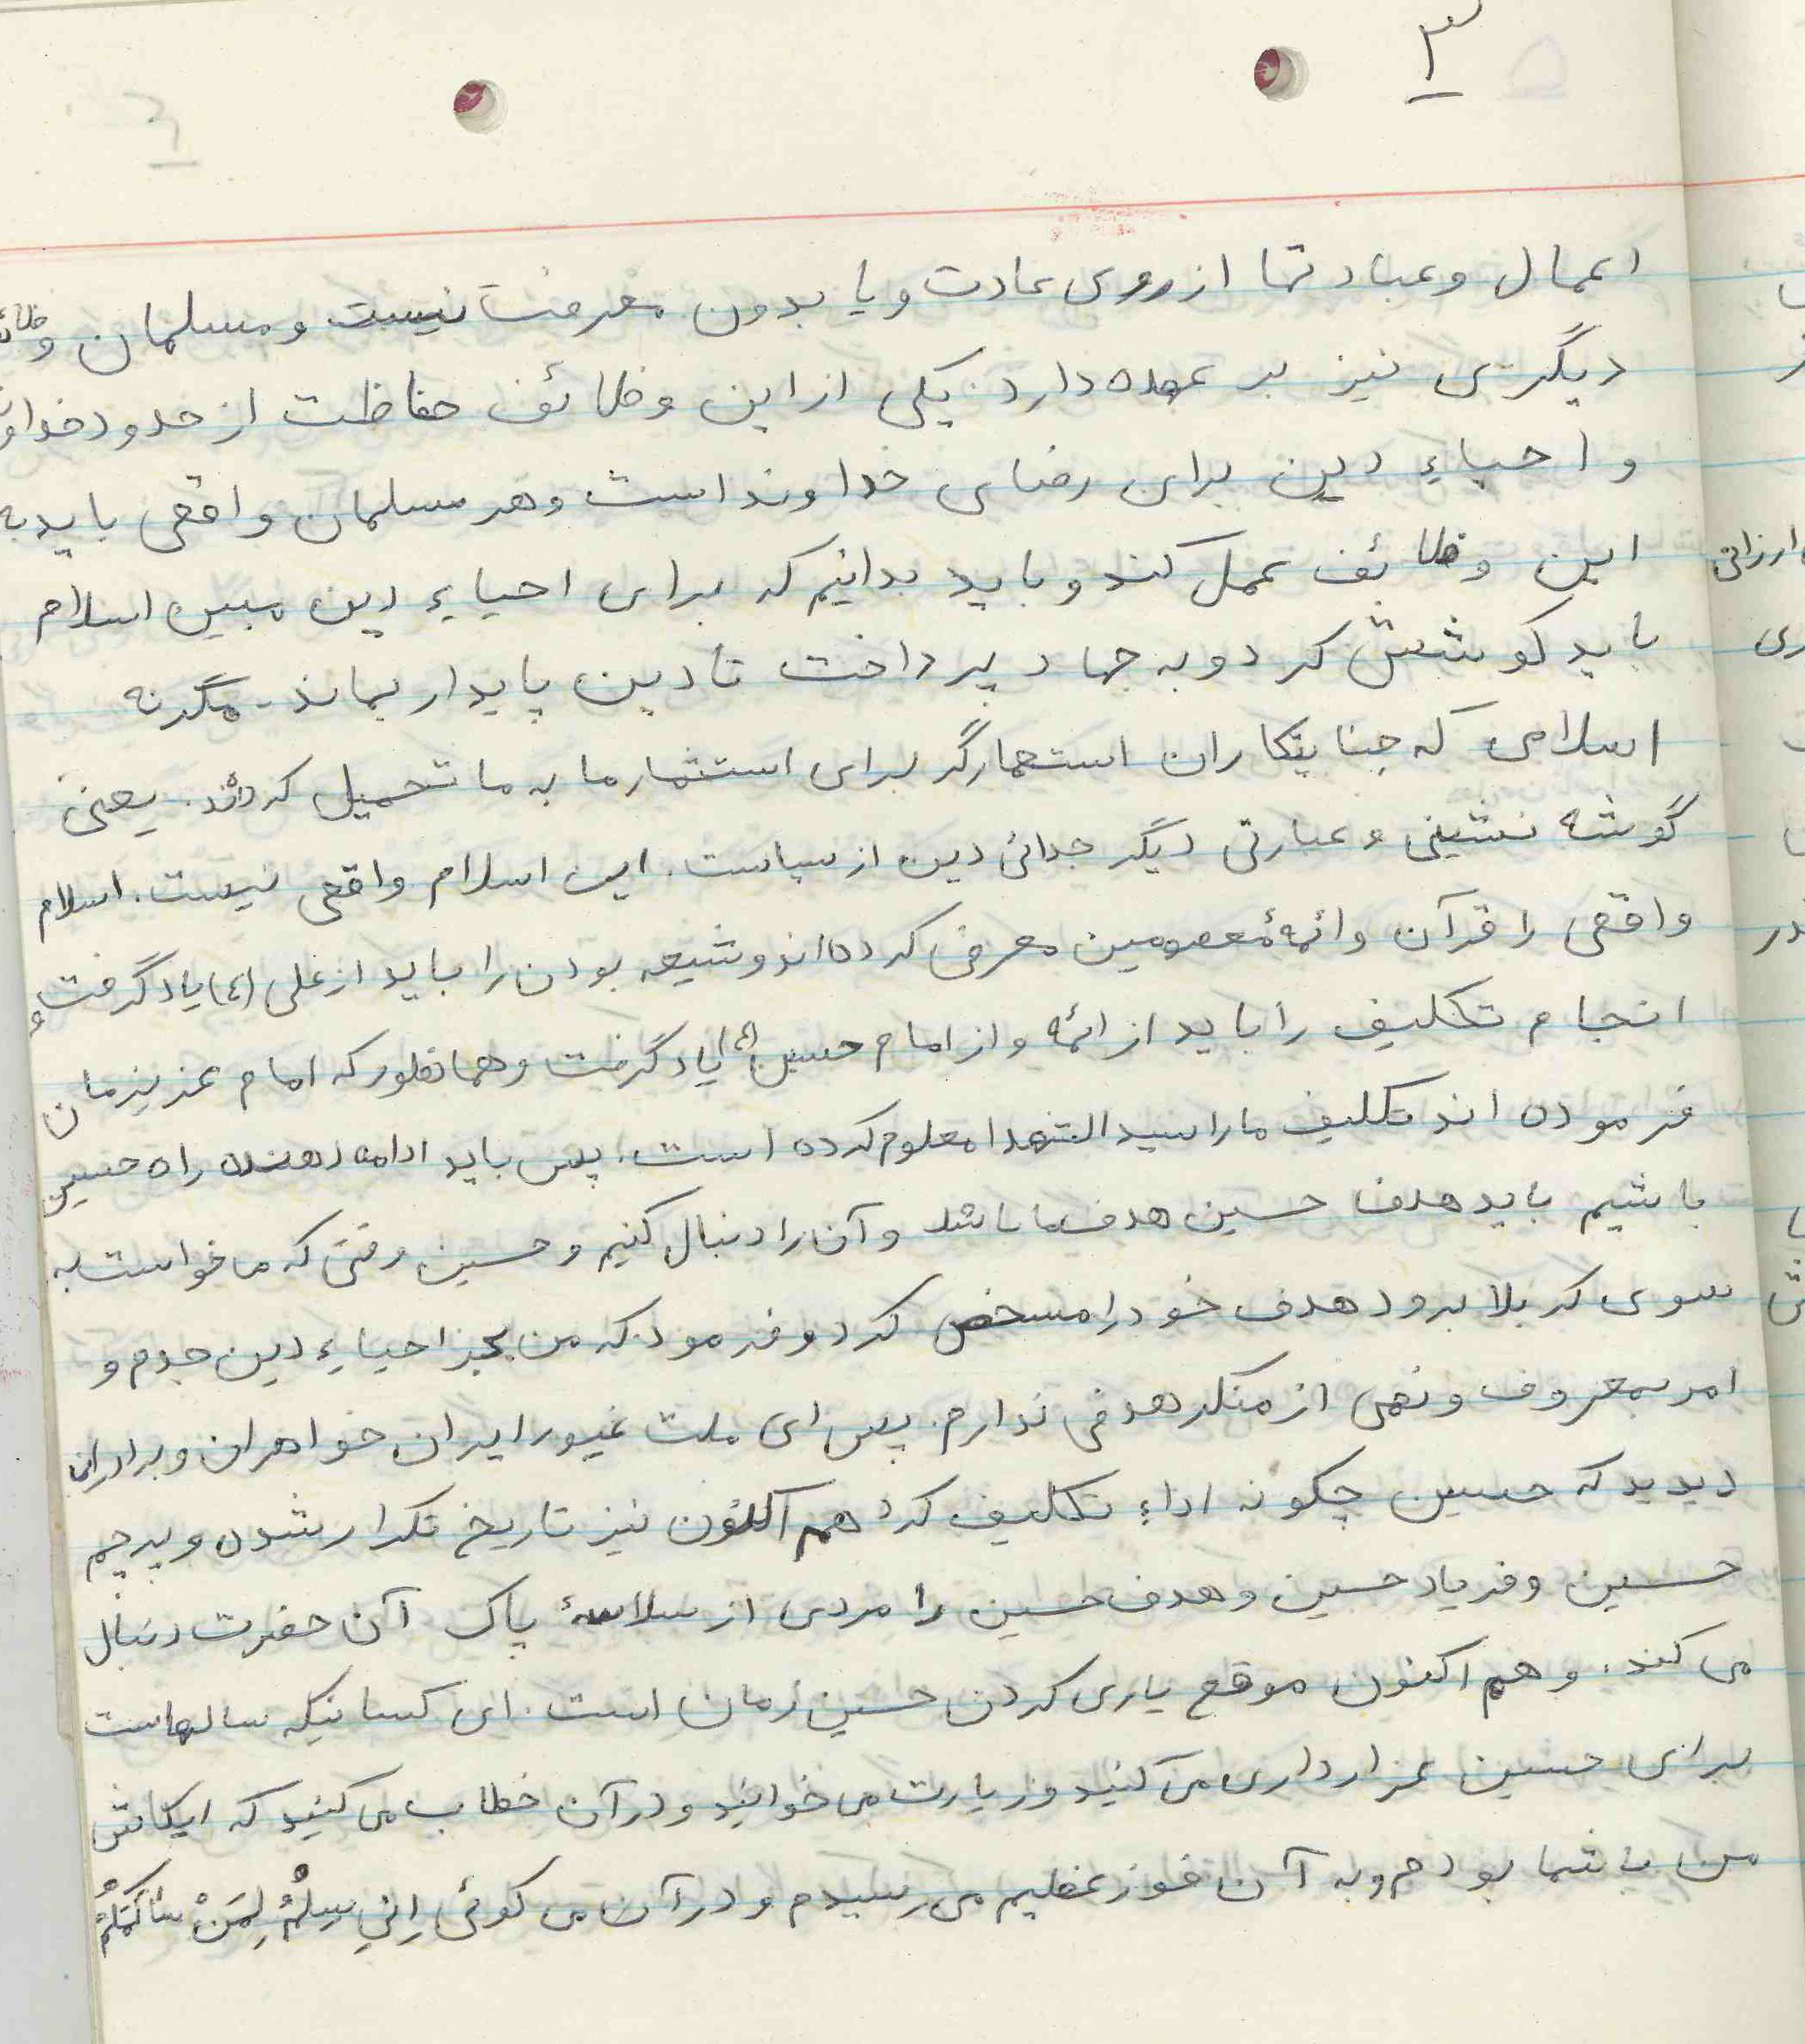 ۳
اعمال و عبادتها از روی عادت و یا بدون معرفت نیست و مسلمان
دیگری نیز بر عهده دارد یکی از این وظائف حفاظت از حدود
و احیاءِ دین برای رضای خداوند است و هر مسلمان واقعی باید به
این وظائف عمل کند و باید بدانیم که برای احیاءِ دین مبین اسلام
باید کوشش کرد و به جهاد پرداخت تا دین پایدار بماند. مگر نه
اسلامی که جنایتکاران استعمارگر برای استثمار ما به ما تحمیل کرده‌اند. یعنی
گوشه نشینی و عبارتی دیگر جدائی دین از سیاست. این اسلام واقعی نیست. اسلام
واقعی را قرآن و ائمهٔ معصومین معرفی کرده‌اند و شیعه بودن را باید از علی (ع) یاد گرفت و
انجام تکلیف را باید از ائمه و از امام حسین (ع) یاد گرفت و همانطور که امام عزیزمان
فرموده اند تکلیف ما را سید الشهدا معلوم کرده است. پس باید ادامه دهنده راه حسین
باشیم باید هدف حسین هدف ما باشد و آن را دنبال کنیم و حسین وقتی که می‌خواست به
سوی کربلا برود هدف خود را مسخص کرد و فرمود که من بجز احیاءِ دین جدم و
امر بمعروف و نهی از منکر هدفی ندارم. پس ای ملت غیور ایران خواهران و برادران
دیدید که حسین چگونه اداءِ تکلیف کرد هم اکنون نیز تاریخ تکرار شده و پرچم
حسین و فریاد حسین و هدف حسین را مردی از سلاسهٔ پاک آن حضرت دنبال
می کند. و هم اکنون موقع یاری کردن حسین زمان است. ای کسانیکه سالهاست
برای حسین عزاداری می کنید و زیارت می خوانید و در آن خطاب می کنید که ایکاش
من با شما بودم و به آن فوز عظیم می رسیدم و در آن می گوئی اِنّی سِلْمٌ لِمَنْ سٰالَمَکُمْ